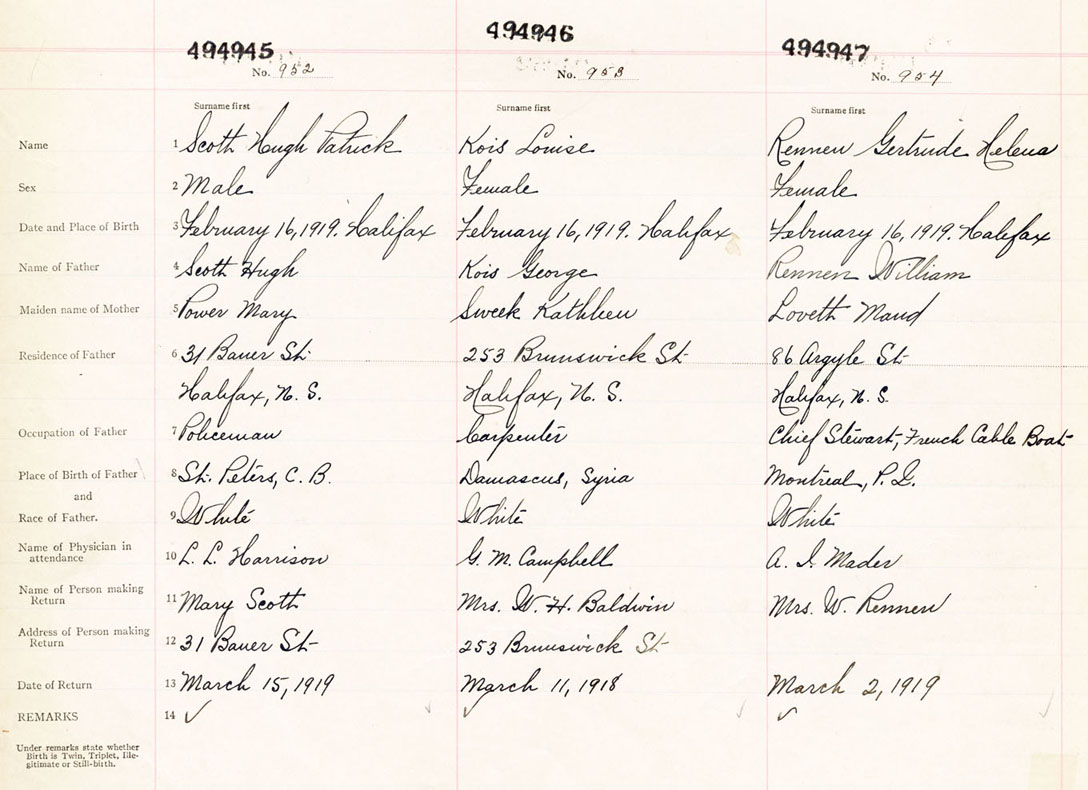 494945 494946 494947
No. 952 No. 953 No. 954
Surname first Surname first Surname first
Name 1 Scott Hugh Patrick Kois Louise Rennen Gertrude Helena
Sex 2 Male Female Female
Date and Place of Birth 3 February 16, 1919. Halifax February 16, 1919. Halifax February 16, 1919. Halifax
Name of Father 4 Scott Hugh Kois George Rennen William
Maiden name of Mother 5 Power Mary Sweek Kathleen Lovett Maud
Residence of Father 6 31 Bauer St. 253 Brunswick St. 86 Argyle St.
Halifax, N. S. Halifax, N. S. Halifax, N. S.
Occupation of Father 7 Policeman Carpenter Chief Stewart, French Cable Boat
Place of Birth of Father 8 St. Peters, C. B. Damascus, Syria Montreal, P. Q.
and
Race of Father. 9 White White White
Name of Physician in
attendance 10 L. L. Harrison G. M. Campbell A. I. Mader
Name of Person making
Return 11 Mary Scott Mrs. W. H. Baldwin Mrs. W. Rennen
Address of Person making
Return 12 31 Bauer St 253 Brunswick St
Date of Return 13 March 15, 1919 March 11, 1918 March 2, 1919
REMARKS 14 ✓ ✓ ✓
Under remarks state whether
Birth is Twin, Triplet, Ille-
gitimate or Still-birth.